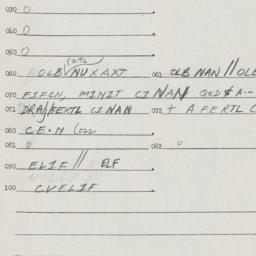 030 0
040 0
050 0
060 OLB NUXAXT 061 OLB NAN // OLB
070 EIFCH, MINIT CINAN
071 DRA//FERTL CINAN 072 + A FERTL C
080 C.E.M (022
081 0 082 0
090 ELIF // ELF
100 CVELIF